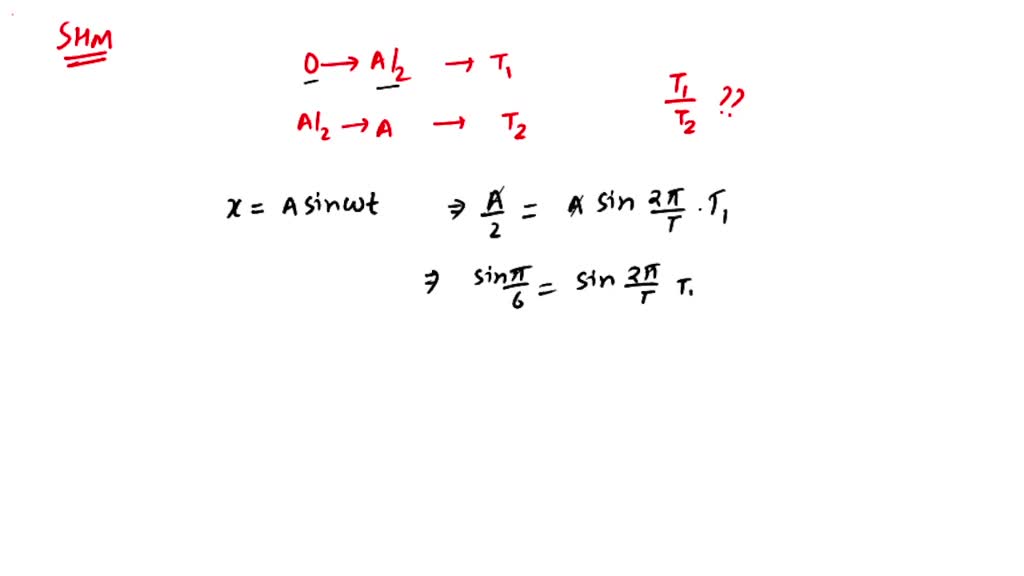 SHM
O → A/2 → T₁
A/2 → A → T₂
T₁/T₂ ??
x = A sinωt ⇒ A/2 = A sin 2π/T . T₁
⇒ sin π/6 = sin 2π/T T₁